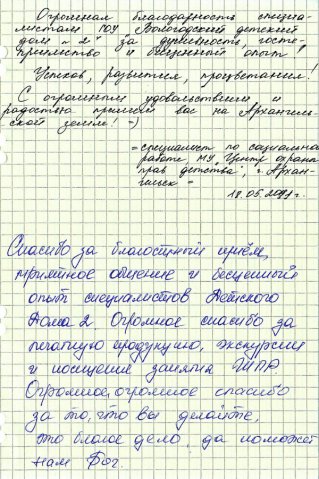 Огромная благодарность специа-
листам ГОУ "Вологодский детский
дом № 2" за душевность, госте-
приимство и бесценный опыт!
Успехов, развития, процветания!
С огромным удовольствием и
радостью примем вас на Архангель-
ской земле! =)
= специалист по социальной
работе, МУ "Центр охраны
прав детства", г. Архан-
гельск =
18.05.2011 г.
Спасибо за благостный приём,
приятное общение и бесценный
опыт специалистов Детского
Дома 2. Огромное спасибо за
печатную продукцию, экскурсии
и посещение занятия
Огромное, огромное спасибо
за то, что вы делаете,
это благое дело, да поможет
нам Бог.